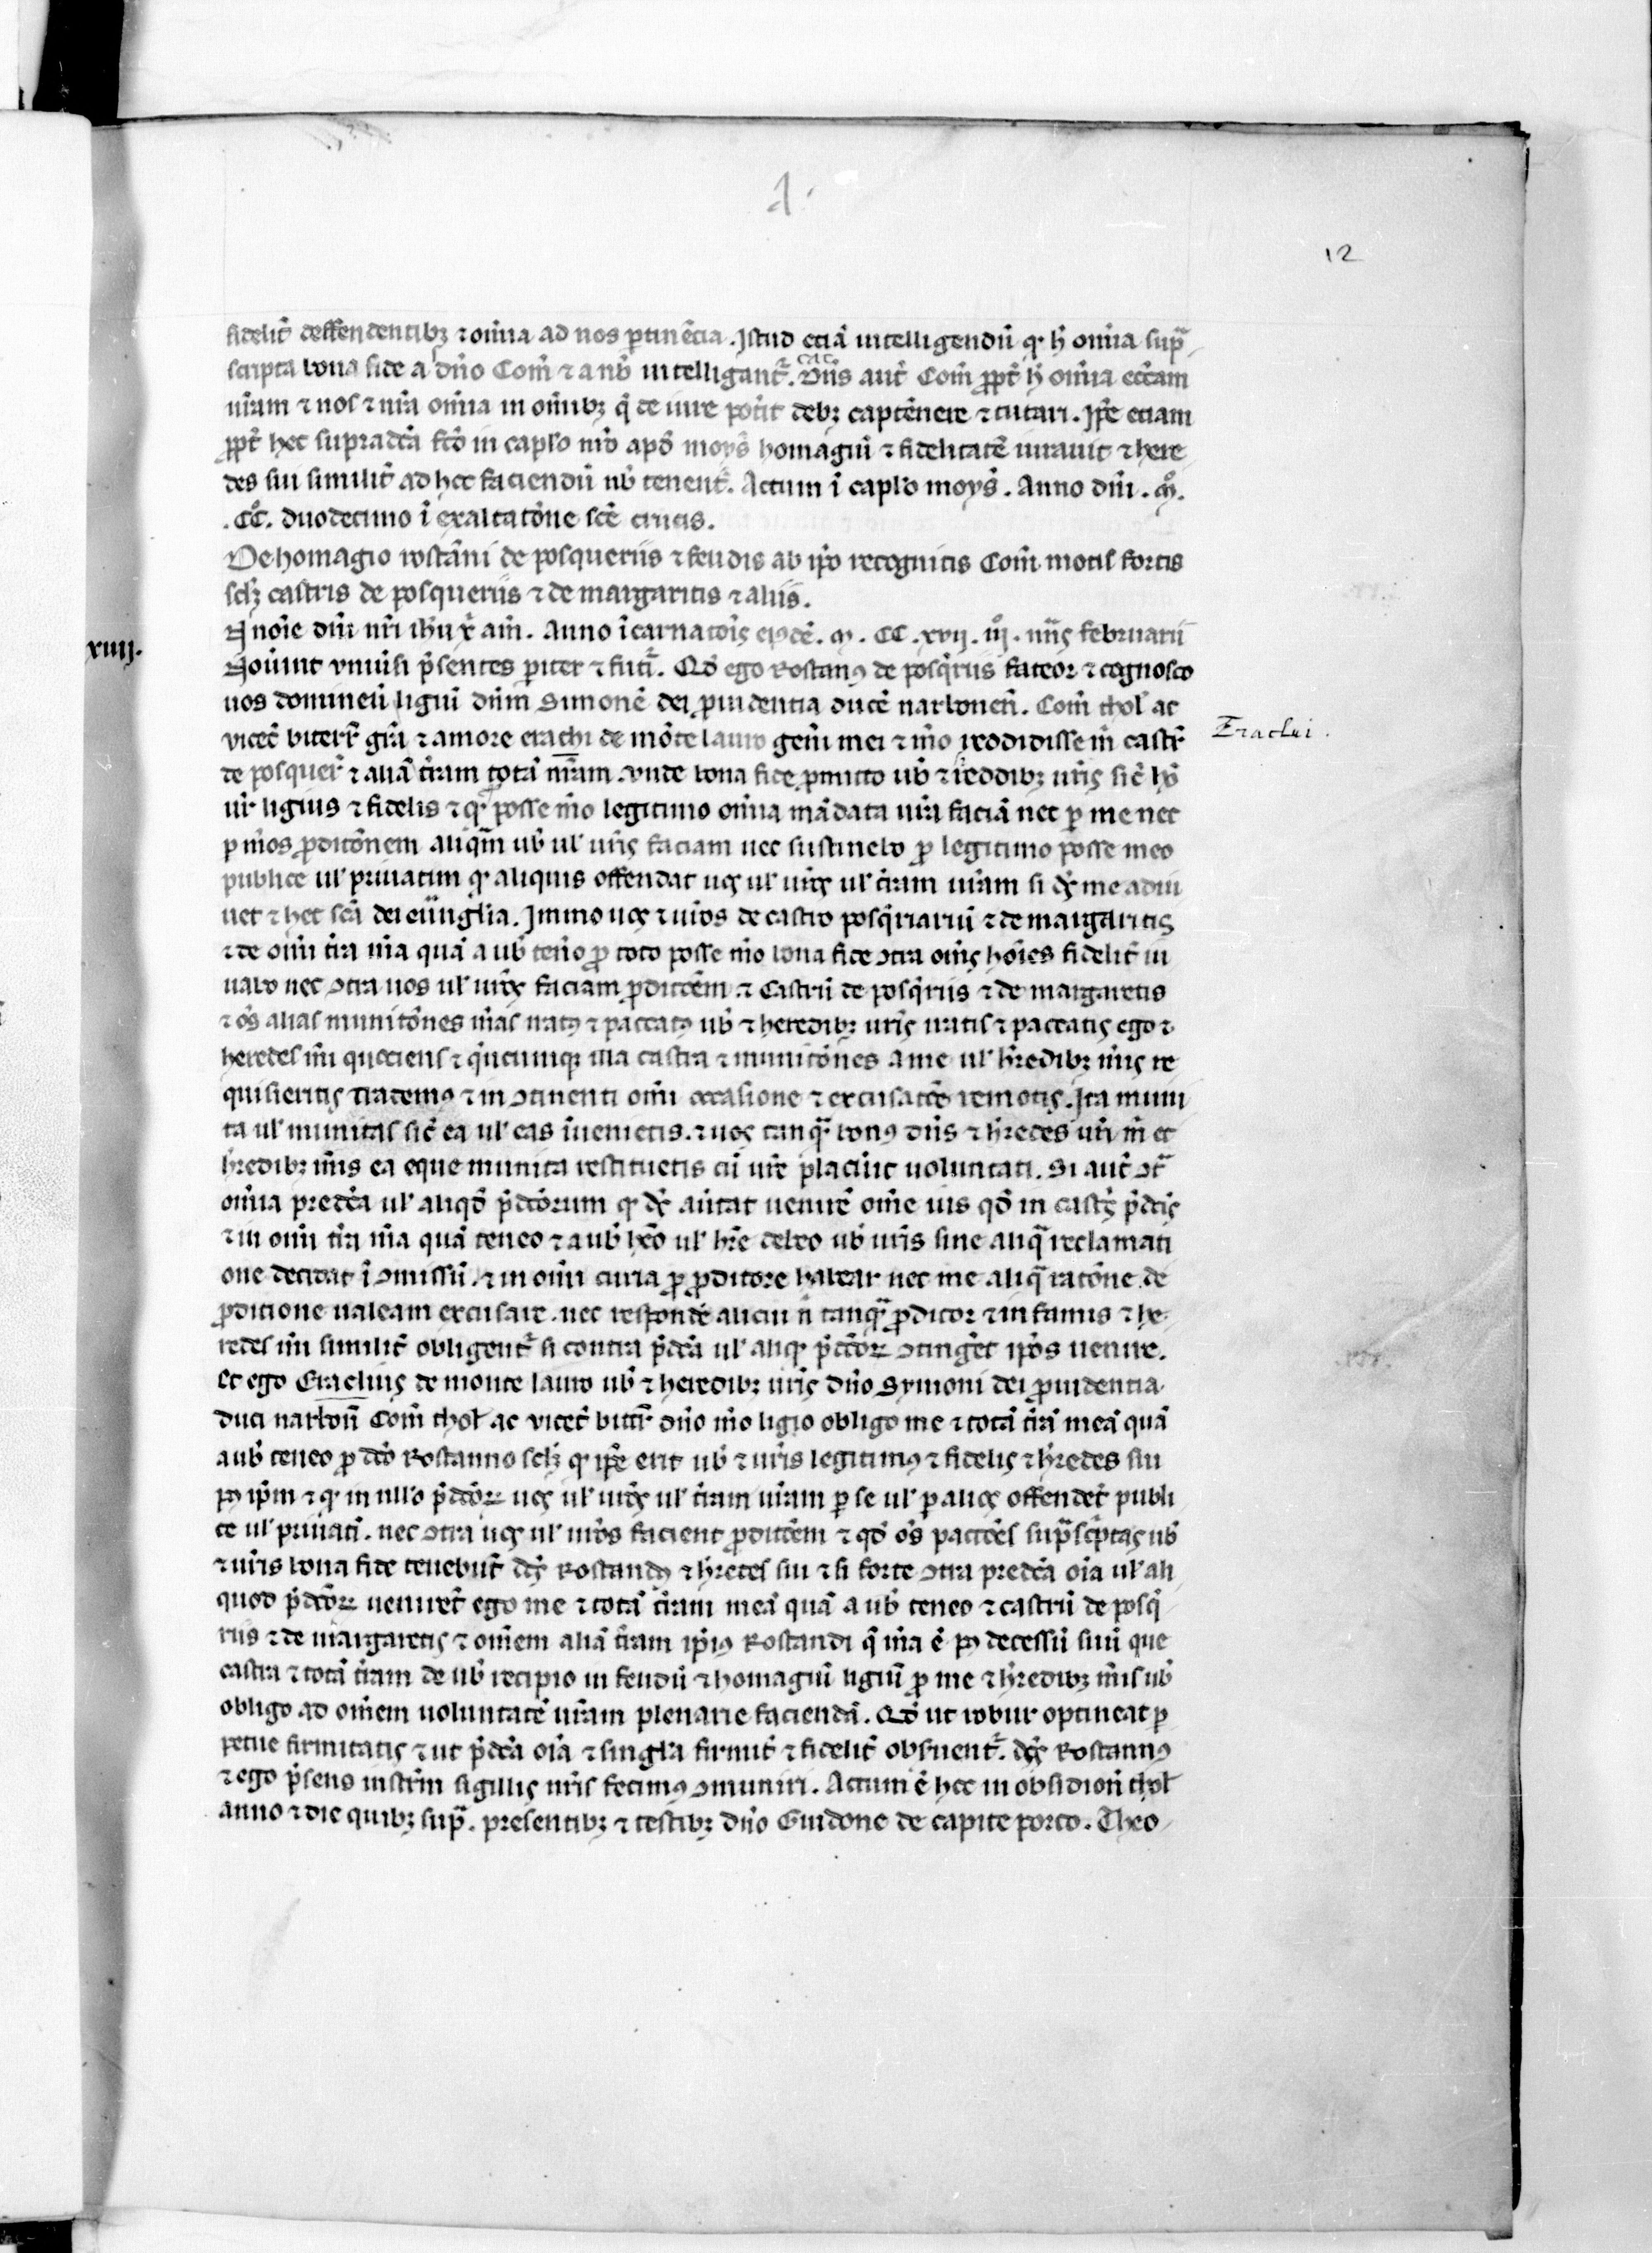 1.
12
fidelit̃ deffendentibꝫ ⁊ om̃ia ad nos ꝑtinẽcia. Istud eciã intelligendũ qꝛ h̃ om̃ia supᵃ
scripta bona fide a dño Com̃ ⁊ a nob̃ intelligant᷑. Dñs aut̃ Com̃ ꝓpt̃ h̃ om̃ia ecc̃am
nr̃am ⁊ nos ⁊ nr̃a om̃ia in om̃ibꝫ q̃ de iure pot̃it debꝫ captẽnere ⁊ tutari. Ip̃e etiam
ꝓpt̃ hec supradc̃a fc̃o in caplo nr̃o apd̃ moys̃ homagiũ ⁊ fidelitatẽ iurauit ⁊ here
des sui similit̃ ad hec faciendũ nob̃ tenent᷑. Actum ĩ caplo moys̃. Anno dñi. m̊.
.CC̊. duodecimo ĩ exaltatõne sc̃e crucis.
De homagio rostãni de posqueriis ⁊ feudis ab ip̃o recognitis Com̃ mõtis fortis
sclꝫ castris de posqueriis ⁊ de margaritis ⁊ aliis.
xiiij.
In noĩe dñi nr̃i ihũ xp̃i am̃. Anno ĩcarnatõis eiusdẽ. m. CC. xvij. iij̊. nõs februarii
Nouint vniũsi p̃sentes pariter ⁊ fut̃i. Qd̃ ego Rostanꝰ de posq̃riis fateor ⁊ cognosco
uos dominũ ligiũ dñm Simonẽ dei ꝓuidentia ducẽ narbonen̄. Com̃ thol̃ ac
Eraclei.
vicec̃ biterr̃ gr̃a ⁊ amore eracli de mõte lauro gen̄i mei ⁊ m̃o reddidisse m̃ castr̃
de posquer̃ ⁊ aliã tr̃am totã m̃am. vnde bona fide ꝓmitto uob̃ ⁊ h̃eddibꝫ ur̃is sic̃ hõ
ur̃ ligius ⁊ fidelis ⁊ qꝛ posse m̃o legitimo om̃ia mãdata ur̃a faciã nec ꝑ me nec
ꝑ m̃os ꝓditõnem aliqm̃ uob̃ ul̃ ur̃is faciam nec sustinebo ꝓ legitimo posse meo
publice ul̃ priuatim qꝛ aliquis offendat uos ul̃ ur̃os ul̃ tr̃am ur̃am si ds̃ me adiu
uet ⁊ hec sc̃a dei euũglia. Immo uos ⁊ ur̃os de castro posq̃riarũ ⁊ de margaritis
⁊ de om̃i tr̃a m̃a quã a uob̃ teneo ꝓ toto posse m̃o bona fide ꝯtra om̃s hoĩes fidelit̃ iu
uabo nec ꝯtra uos ul̃ ur̃os faciam ꝓdictõem ⁊ Castrũ de posq̃riis ⁊ de margaretis
⁊ oẽs alias munitõnes m̃as iratꝰ ⁊ paccatꝰ uob̃ ⁊ heredibꝫ ur̃is iratis ⁊ paccatis ego ⁊
heredes m̃i quociens ⁊ q̃ncumqꝫ illa castra ⁊ munitõnes a me ul̃ h̃redibꝫ m̃is re
quisieritis trademꝰ ⁊ in ꝯtinenti om̃i occasione ⁊ excusatõe remotis. Ita muni
ta ul̃ munitas sic̃ ea ul̃ eas ĩuenietis. ⁊ uos tanqᵃ bonꝰ dñs ⁊ h̃redes ur̃i m̃ et
h̃redibꝫ m̃is ea eque munita restituetis cũ ur̃e placũit uoluntati. Si aut̃ ꝯtᵃ
om̃ia predc̃a ul̃ aliqd̃ p̃dc̃orum qꝛ ds̃ au̾tat uenirẽ om̃e ius qd̃ in castris p̃dc̃is
⁊ in om̃i tr̃a m̃a quã teneo ⁊ a uob̃ hẽo ul̃ hr̃e debeo uob̃ ur̃is sine aliqᵃ reclamati
one decidat ĩ ꝯmissũ. ⁊ in om̃i curia ꝓ ꝓditore habear nec me aliqᵃ ratõne de
ꝓdicione ualeam excusare. nec respondẽ alicui ñ tanqᵃ ꝓditor ⁊ infamis ⁊ he
redes m̃i similit̃ obligent᷑ si contra p̃dc̃a ul̃ aliqꝛ p̃dc̃orꝝ ꝯtinget̃ ip̃os uenire.
Et ego Eracliꝰ de monte lauro uob̃ ⁊ heredibꝫ ur̃is dño Symoni dei ꝓuidentia
duci narbon̄ Com̃ thol̃ ac vicec̃ bitr̃r dño m̃o ligio obligo me ⁊ totã tr̃ã meã quã
a uob̃ teneo ꝓ dc̃o Rostanno sclꝫ qꝛ ip̃e erit uob̃ ⁊ ur̃is legitimꝰ ⁊ fidelis ⁊ h̃redes sui
pꝰ ip̃m ⁊ qꝛ in nullo p̃dc̃orꝝ uos ul̃ ur̃os ul̃ tr̃am ur̃am ꝑ se ul̃ ꝑ alios offendet̃ publi
ce ul̃ priuati. nec ꝯtra uos ul̃ ur̃os facient ꝓdictõem ⁊ qd̃ oẽs pacc̃oes supᵃsc̃ptas uob̃
⁊ ur̃is bona fide tenebũt dc̃s Rostandꝰ ⁊ h̃redes sui ⁊ si forte ꝯtra predc̃a oĩa ul̃ ali
quod p̃dc̃orꝝ ueniret̃ ego me ⁊ totã tr̃am meã quã a uob̃ teneo ⁊ castrũ de posq̃
riis ⁊ de margaretis ⁊ om̃em aliã tr̃am ip̃iꝰ Rostandi q̃ m̃a ẽ pꝰ decessũ suũ que
castra ⁊ totã tr̃am de uob̃ recipio in feudũ ⁊ homagiũ ligiũ ꝓ me ⁊ h̃redibꝫ m̃is uob̃
obligo ad om̃em uoluntatẽ ur̃am plenarie faciendã. Qd̃ ut robur optineat ꝑ
petue firmitatis ⁊ ut p̃dc̃a oĩa ⁊ singl̃a firmit̃ ⁊ fidelit̃ obs̃uent᷑. dc̃s Rostannꝰ
⁊ ego p̃sens instrm̃ sigillis nr̃is fecimꝰ ꝯmuniri. Actum ẽ hec in obsidion̄ thol̃
anno ⁊ die quibꝫ supᵃ. presentibꝫ ⁊ testibꝫ dño Guidone de capite porco. Theo